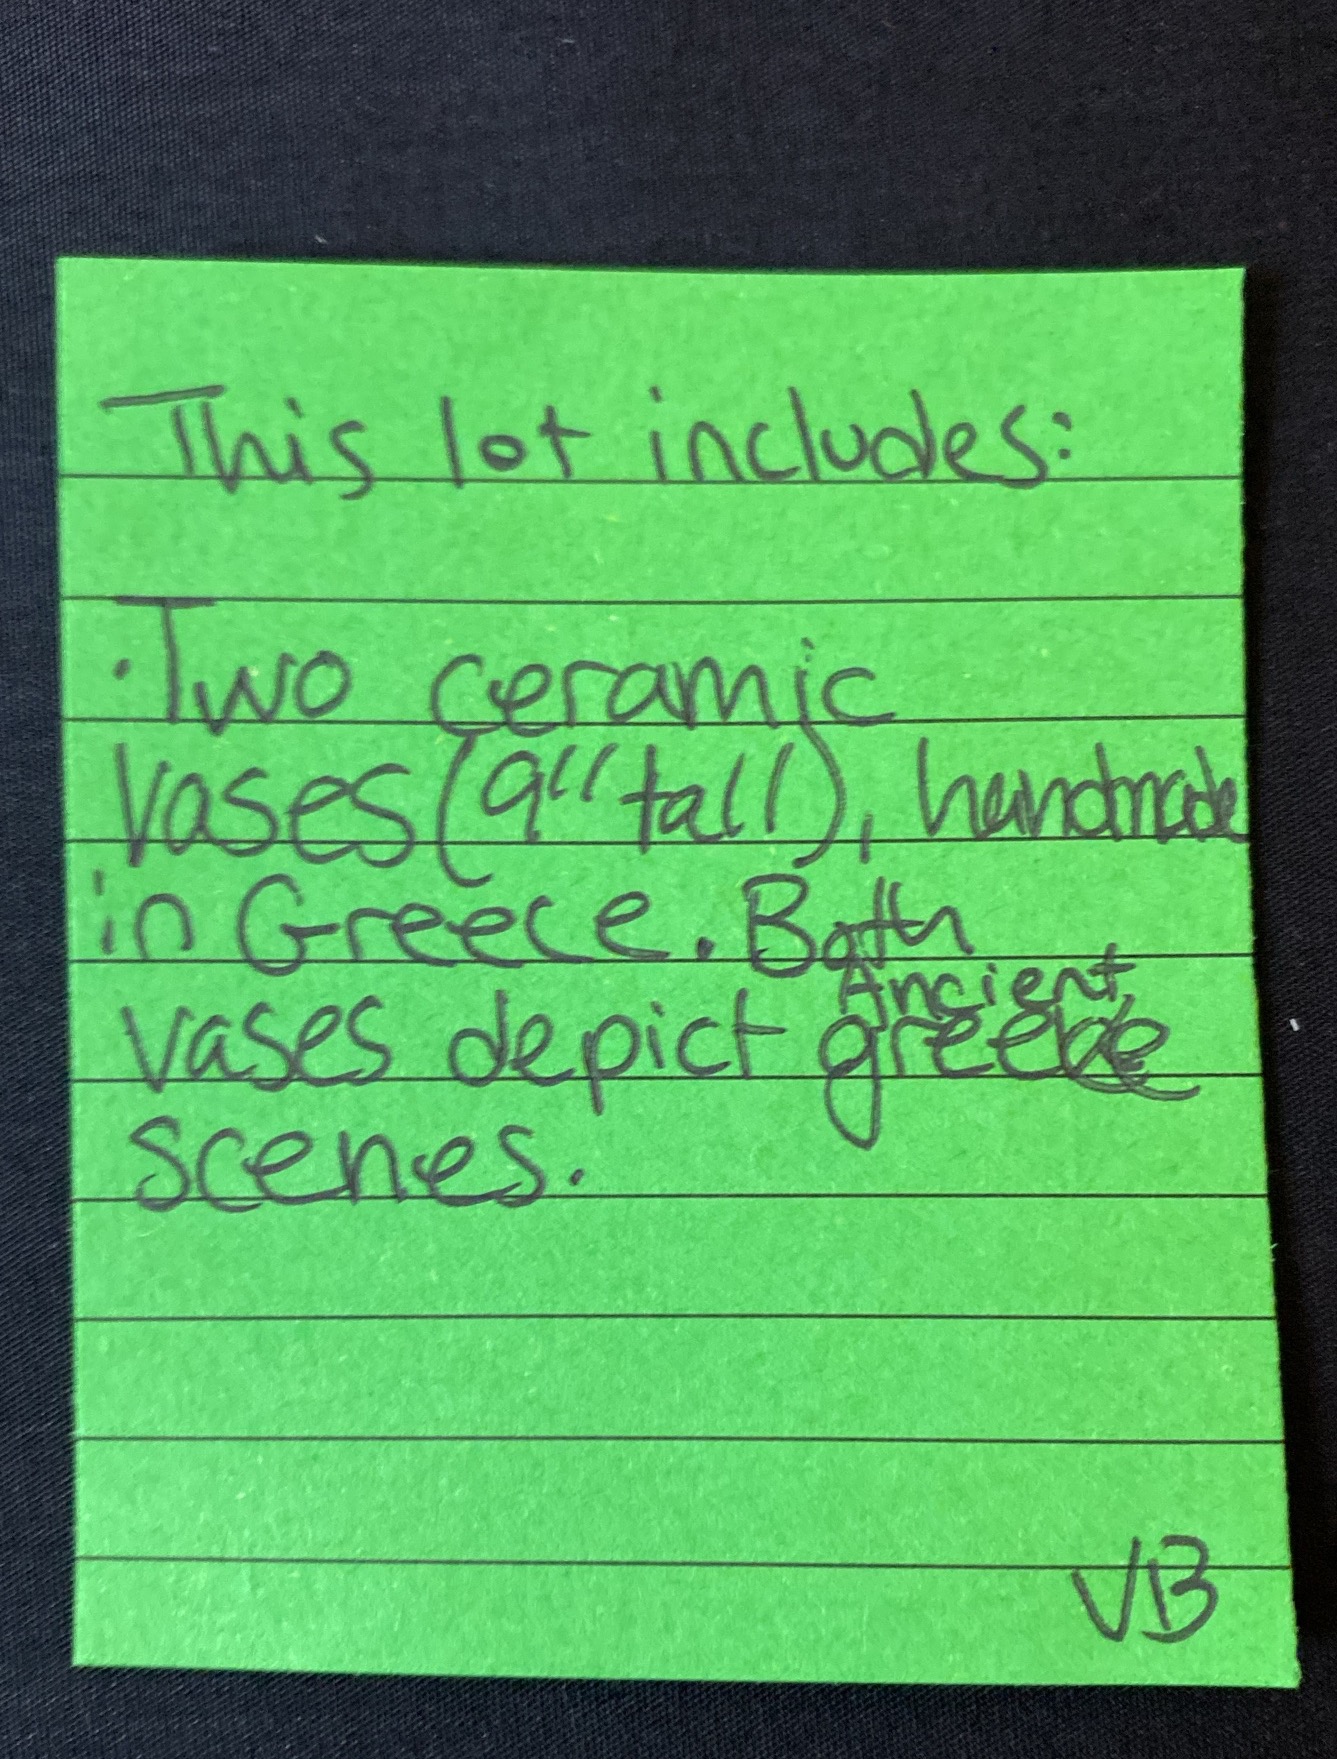 This lot includes:
· Two ceramic
vases (9" tall), handmade
in Greece. Both
Ancient
vases depict greece
scenes.
VB